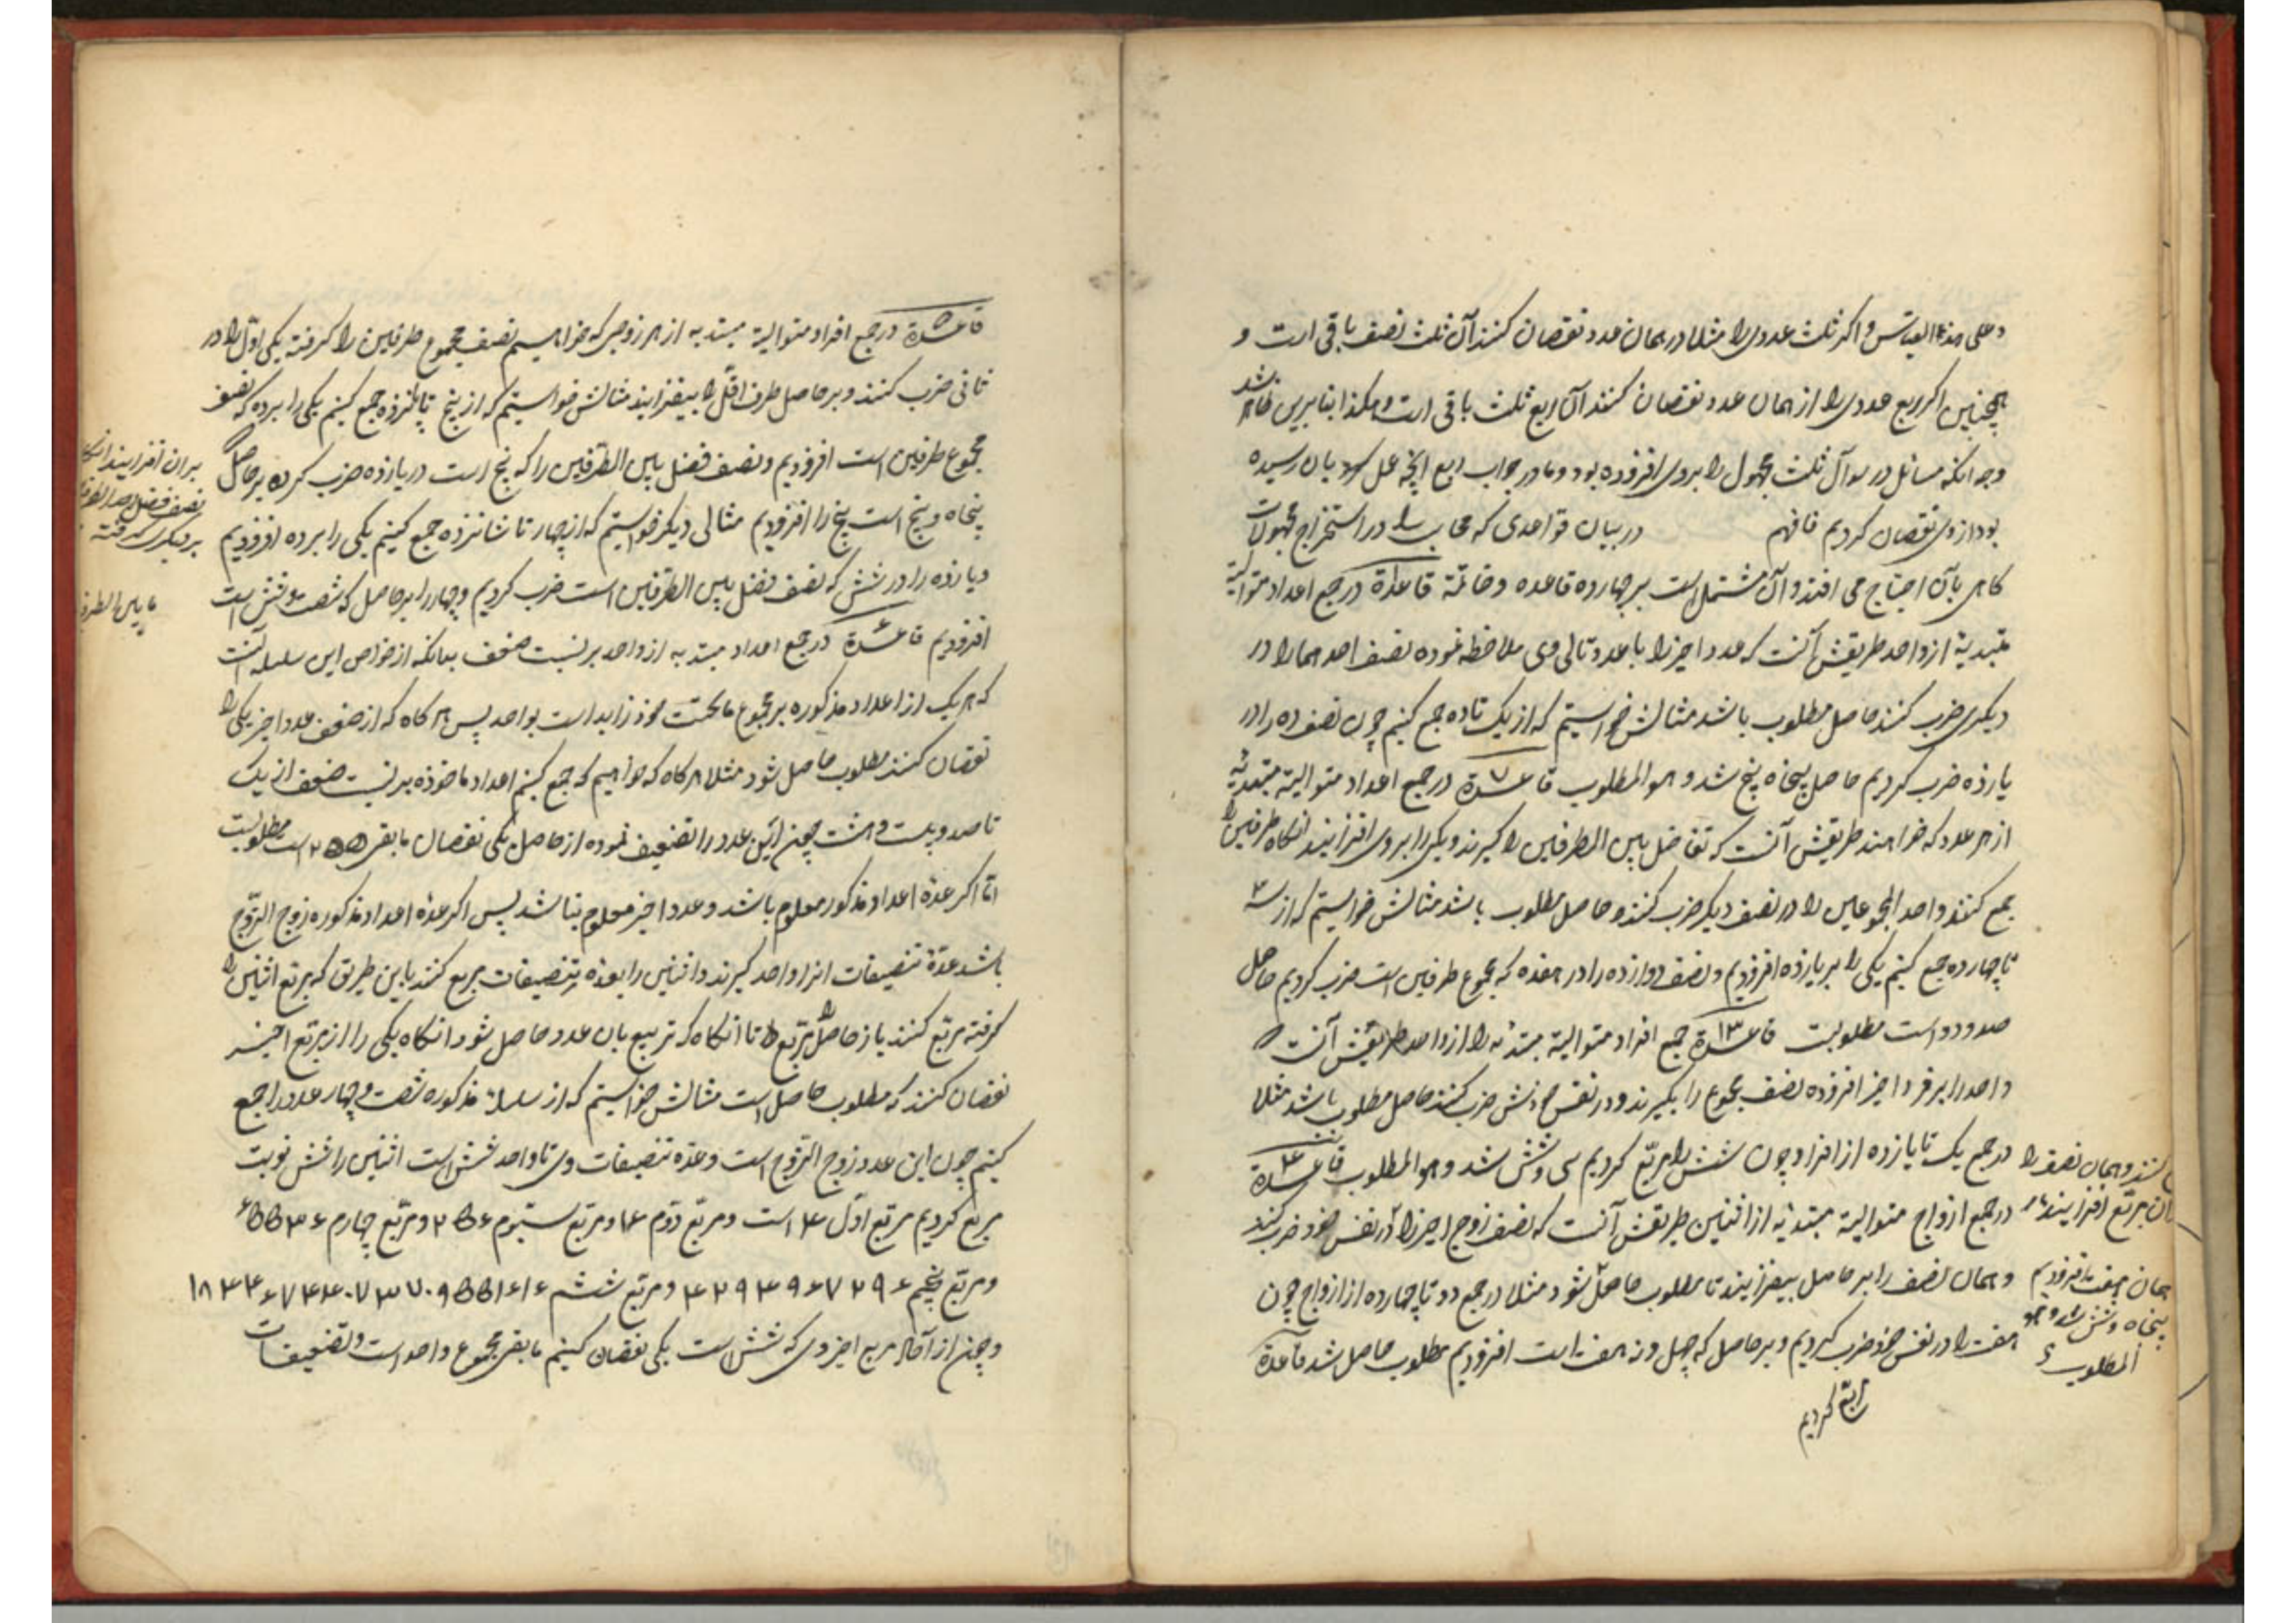 وعلی هذه القیاس و اکر ثلث عددی را مثلا در همان عدد نقصان کنند آن ثلث نصف باقی است و
همچنین اکر ربع عددی را از همان عدد نقصان کنند آن ربع ثلث باقی است و هکذا بنابرین ظاهر شد
وجه آنکه سائل در سوآل ثلث مجهول را بروی افزوده بود و ما در جواب ربع آنچه عمل بان رسیده
بود از وی نقصان کردیم فافهم در بیان قواعدی که محاسب را در استخراج مجهولات
کاهی بآن احتیاج می افتد و آن مشتمل است بر چهارده قاعده و خاتمة قاعدة در جمع اعداد متوالیة
مبتدیة از واحد طریقش آنست که عدد اخیر را با عدد تالی وی ملاحظه نموده نصف احدهما را در
دیکری ضرب کنند حاصل مطلوب باشد مثالش خواستیم که از یک تا ده جمع کنیم چون نصف ده را در
یازده ضرب کردیم حاصل پنجاه پنج شد و هو المطلوب قاعدة در جمع اعداد متوالیة مبتدئة
از هر عدد که خواهند طریقش آنست که تفاضل بین الطرفین را کیرند و یکی را بروی افزایند آنکاه طرفین را
جمع کنند و احد المجموعین را در نصف دیکر ضرب کنند و حاصل مطلوب باشد مثالش خواستیم که از سه
تا چهارده جمع کنیم یکی را بر یازده افزودیم و نصف دوازده را در هفده که مجموع طرفین است ضرب کردیم حاصل
صد و دو است مطلوبست قاعدة جمع افراد متوالیة مبتدئه را از واحد طریقش آنست که
واحد را بر فرد اخیر افزوده نصف مجموع را بکیرند و در نفس خودش ضرب کنند حاصل مطلوب باشد مثلا
در جمع یک تا یازده از افراد چون شش را مربع کردیم سی و شش شد و هو المطلوب قاعدة
در جمع ازواج متوالیة مبتدئه از اثنین طریقش آنست که نصف زوج اخیر را در نفس خود ضرب کنند
و همان نصف را بر حاصل بیفزایند تا مطلوب حاصل شود مثلا در جمع دو تا چهارده از ازواج چون
هفت را در نفس خود ضرب کردیم و بر حاصل که چهل و نه هفت است افزودیم مطلوب حاصل شد قاعدة
کنند و همان نصف را
بران مربع افزایند
همان هفت افزودیم
پنجاه و شش شد و هو
المطلوب
مربع کردیم
قاعدة در جمع افراد متوالیة مبتدیه از هر زوجی که خواهیم نصف مجموع طرفین را کرفته یکی اول را در
ثانی ضرب کنند و بر حاصل طرف اقل را بیفزایند مثالش خواستیم که از پنج تا پانزده جمع کنیم یکی را بر ده که نصف
مجموع طرفین است افزودیم و نصف فضل بین الطرفین را که پنج است در یازده ضرب کرده بر حاصل که
پنجاه و پنج است پنج را افزودیم مثالی دیکر خواستیم که از چهار تا شانزده جمع کنیم یکی را بر ده افزودیم
و یازده را در شش که نصف فضل بین الطرفین است ضرب کردیم و چهار را بر حاصل که شصت و شش است
افزودیم قاعدة در جمع اعداد مبتدیه از واحد بر نسبت ضعف بدانکه از خواص این سلسله آنست
که هر یک از اعداد مذکوره بر مجموع ماتحت خود زاید است بواحد پس هر کاه که از ضعف عدد اخیر یکی را
نقصان کنند مطلوب حاصل شود مثلا هر کاه که خواهیم که جمع کنیم اعداد ماخوذه بر نسبت ضعف از یک
تا صد و بیست و هشت چون این عدد را تضعیف نموده از حاصل یکی نقصان مابقی ۲۵۵ است مطلوبست
اما اکر عدة اعداد مذکور معلوم باشد و عدد اخیر معلوم نباشد پس اکر عدة اعداد مذکوره زوج الزوج
باشد عدة تنصیفات انرا تا واحد کیرند و اثنین را بعدة تنصیفات مربع کنند باین طریق که مربع اثنین را
کرفته مربع کنند باز حاصل را مربع تا آنکاه که تربیع بان عدد حاصل شود آنکاه یکی را از مربع اخیر
نقصان کنند که مطلوب حاصل است مثالش خواستیم که از سلسلة مذکوره شصت و چهار عدد را جمع
کنیم چون این عدد زوج الزوج است و عدة تنصیفات وی تا واحد شش است اثنین را شش نوبت
مربع کردیم مربع اول ۴ است و مربع دوم ۱۶ و مربع سیوم ۲۵۶ و مربع چهارم ۶۵۵۳۶
و مربع پنجم ۴۲۹۴۹۶۷۲۹۶ و مربع ششم ۱۸۴۴۶۷۴۴۰۷۳۷۰۹۵۵۱۶۱۶
و چون از آحاد مربع اخیر وی که شش است یکی نقصان کنیم مابقی مجموع واحد است و تضعیفات
بران افزایند آنکاه
نصف فضل احد الطرفین
بر دیکری کرفته
ما بین الطرفین